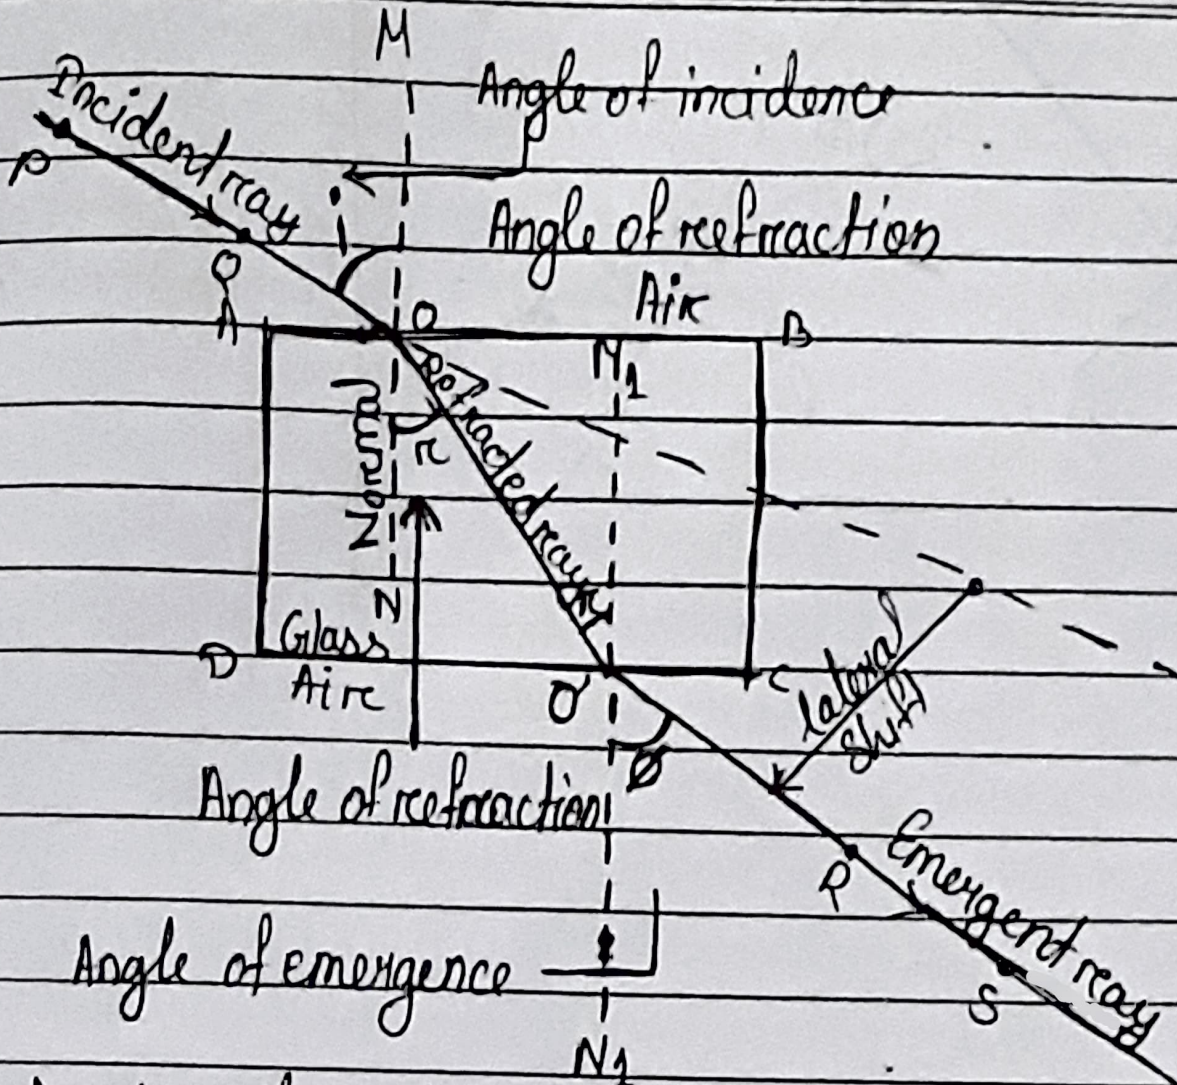 M
Angle of incidence
Incident ray
P
i
Angle of refraction
Q
Air
A
O
B
M1
Refracted ray
Normal
r
N
Glass
D
Air
O'
C
lateral
shift
ø
Angle of refraction
R
Emergent ray
Angle of emergence
S
N1